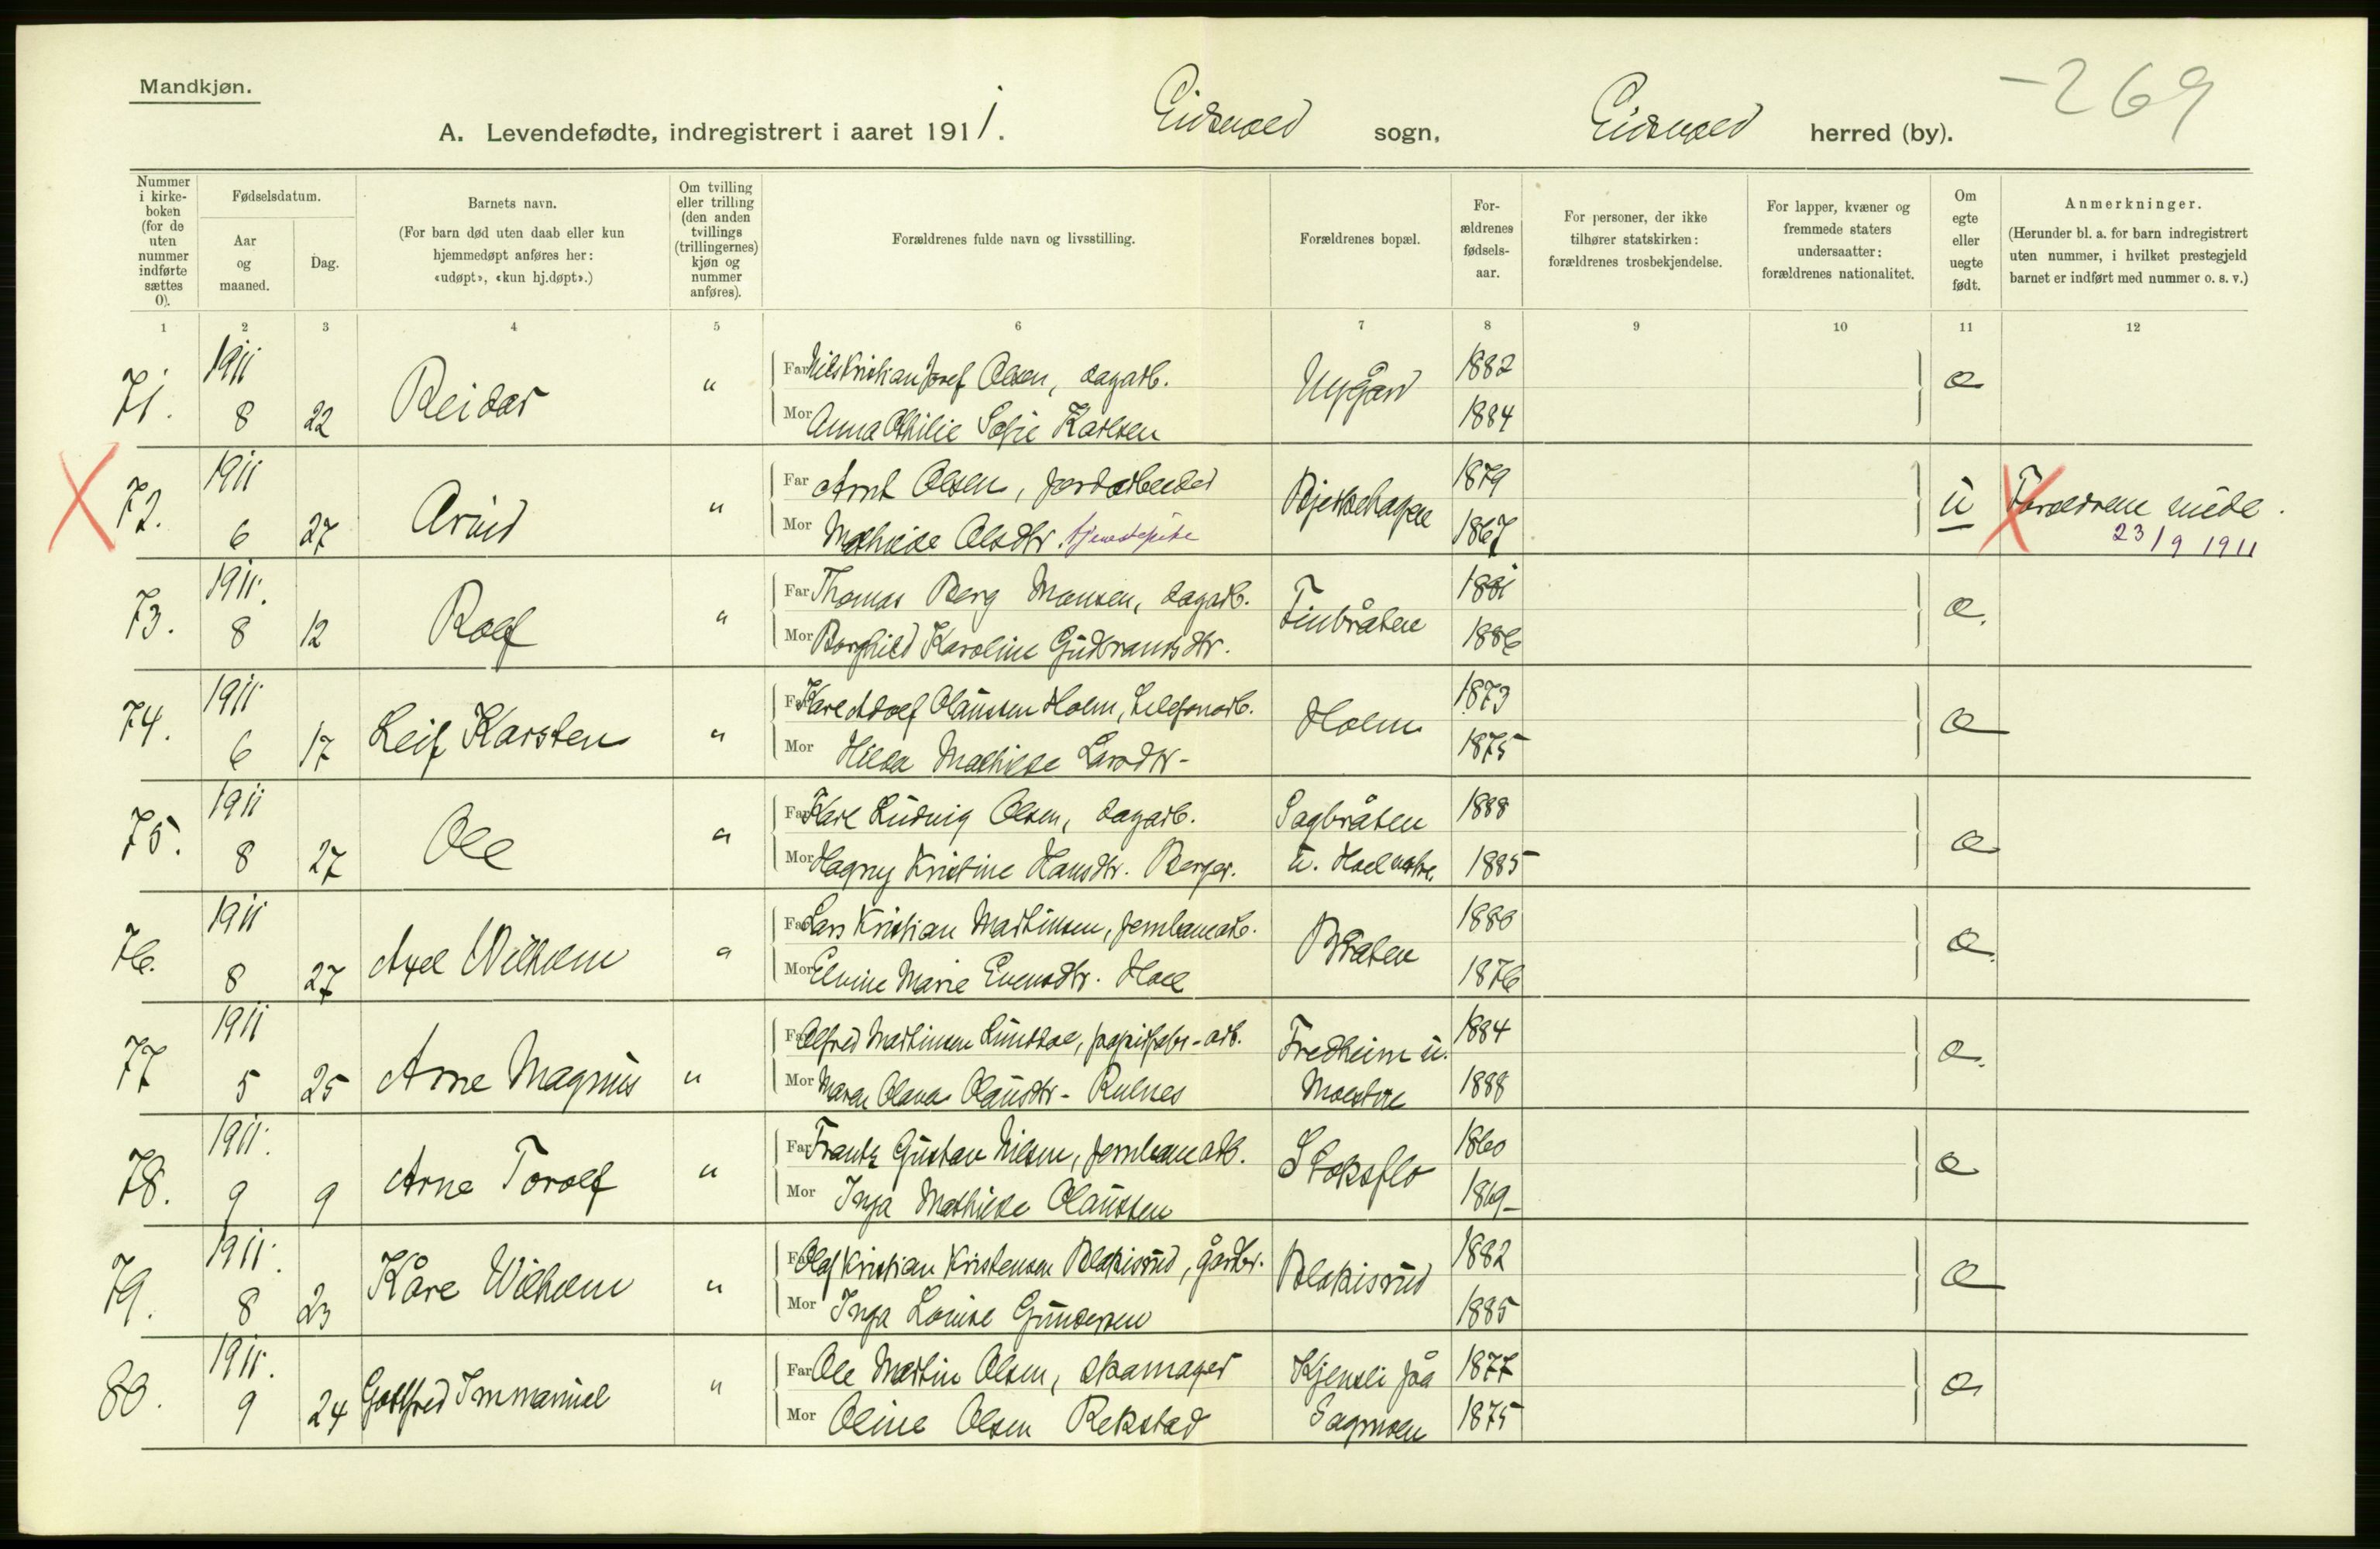 Mandkjøn.
-269
A. Levendefødte, indregistrert i aaret 1911. Eidsvold sogn, Eidsvold herred (by).
Nummer i kirke-boken (for de uten nummer indførte sættes 0).
Fødselsdatum.
Aar og maaned.
Dag.
Barnets navn.
(For barn død uten daab eller kun hjemmedøpt anføres her: «udøpt», «kun hj.døpt».)
Om tvilling eller trilling (den anden tvillings (trillingernes) kjøn og nummer anføres).
Forældrenes fulde navn og livsstilling.
Forældrenes bopæl.
For-ældrenes fødsels-aar.
For personer, der ikke tilhører statskirken: forældrenes trosbekjendelse.
For lapper, kvæner og fremmede staters undersaatter: forældrenes nationalitet.
Om egte eller uegte født.
Anmerkninger.
(Herunder bl. a. for barn indregistrert uten nummer, i hvilket prestegjeld barnet er indført med nummer o. s. v.)
1 2 3 4 5 6 7 8 9 10 11 12
71. 1911 8 22 Reidar " Far Nils Kristian Josef Olsen, dagarb. Nygård 1882 e
Mor Anna Othilie Sofie Karlsen 1884
72. 1911 6 27 Arvid " Far Arnt Olsen, jordarbeider Bjerkehagen 1879 u Forældrene møde.
Mor Mathilde Olsdtr. tjenestepike 1867 23/9 1911
73. 1911. 8 12 Rolf " Far Thomas Berg Monsen, dagarb. Finbråten 1881 e.
Mor Borghild Karoline Gudbrandsdtr. 1886
74. 1911 6 17 Leif Karsten " Far Karl Adolf Olaussen Holm, telefonarb. Holm 1873 e
Mor Hilda Mathilde Larsdtr- 1875
75. 1911 8 27 Ole " Far Karl Ludvig Olsen, dagarb. Sagbråten 1888 e
Mor Hagny Kristine Hansdtr. Berger. u. Hoel 1885
76. 1911 8 27 Axel Wilhelm " Far Lars Kristian Martinsen, jernbanearb. Bråten 1880 e.
Mor Elvine Marie Evensdtr. Hoel 1876
77 1911 5 25 Arne Magnus " Far Alfred Martinsen Lundtoe, papirfabr-arb. Fredheim u. 1884 e.
Mor Maren Olava Olausdtr- Rulnes Moestue 1888
78. 1911. 9 9 Arne Torolf " Far Frantz Gustav Nilsen, jernbanearb. Stoksflo 1860 e
Mor Inga Mathilde Olaussen 1869-
79. 1911. 8 23 Kåre Wilhelm " Far Olaf Kristian Kristensen Blakisrud, gårdbr. Blakisrud 1882 e
Mor Inga Louise Gundersen 1885
80. 1911. 9 24 Gottfred Immanuel " Far Ole Martin Olsen, skomager Kjensli på 1877 e
Mor Oline Olsen Rekstad Sagmoen 1875